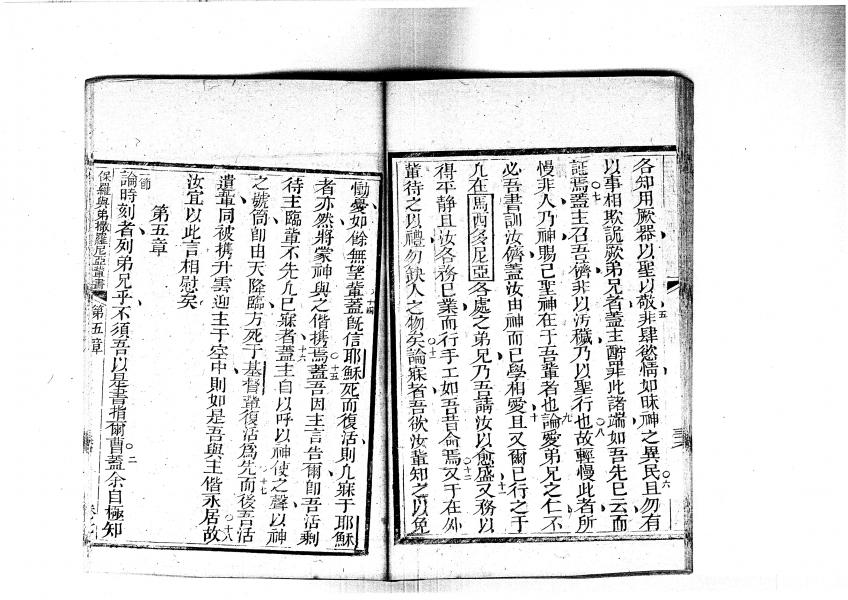 各知用厥器以聖以敬非肆慾情如昧神之異民且勿有
以事相欺詭厥弟兄者蓋主酧罪此諸端如吾先已云而
証焉蓋主召吾儕非以汚穢乃以聖行也故輕慢此者所
慢非人乃神賜己聖神在于吾輩者也論愛弟兄之仁不
必吾書訓汝儕蓋汝由神而已學相愛且又爾已行之于
凡在馬西多尼亞各處之弟兄乃吾請汝以愈盛又務以
得平静且汝各務己業而行手工如吾昔命焉又于在外
輩待之以禮勿缺人之物矣論寐者吾欲汝輩知之以免
慟憂如餘無望輩蓋旣信耶穌死而復活則凡寐于耶穌
者亦然將蒙神與之偕携焉蓋吾因主言告爾卽吾活剩
待主臨輩不先凡已寐者蓋主自以呼以神使之聲以神
之號筒卽由天降臨方死于基督輩復活爲先而後吾活
遺輩同被携升雲迎主于空中則如是吾與主偕永居故
汝宜以此言相慰矣
第五章
保羅與弟撒羅尼亞輩書 第五章
一節
論時刻者列弟兄乎不須吾以是書指爾曹蓋余自極知